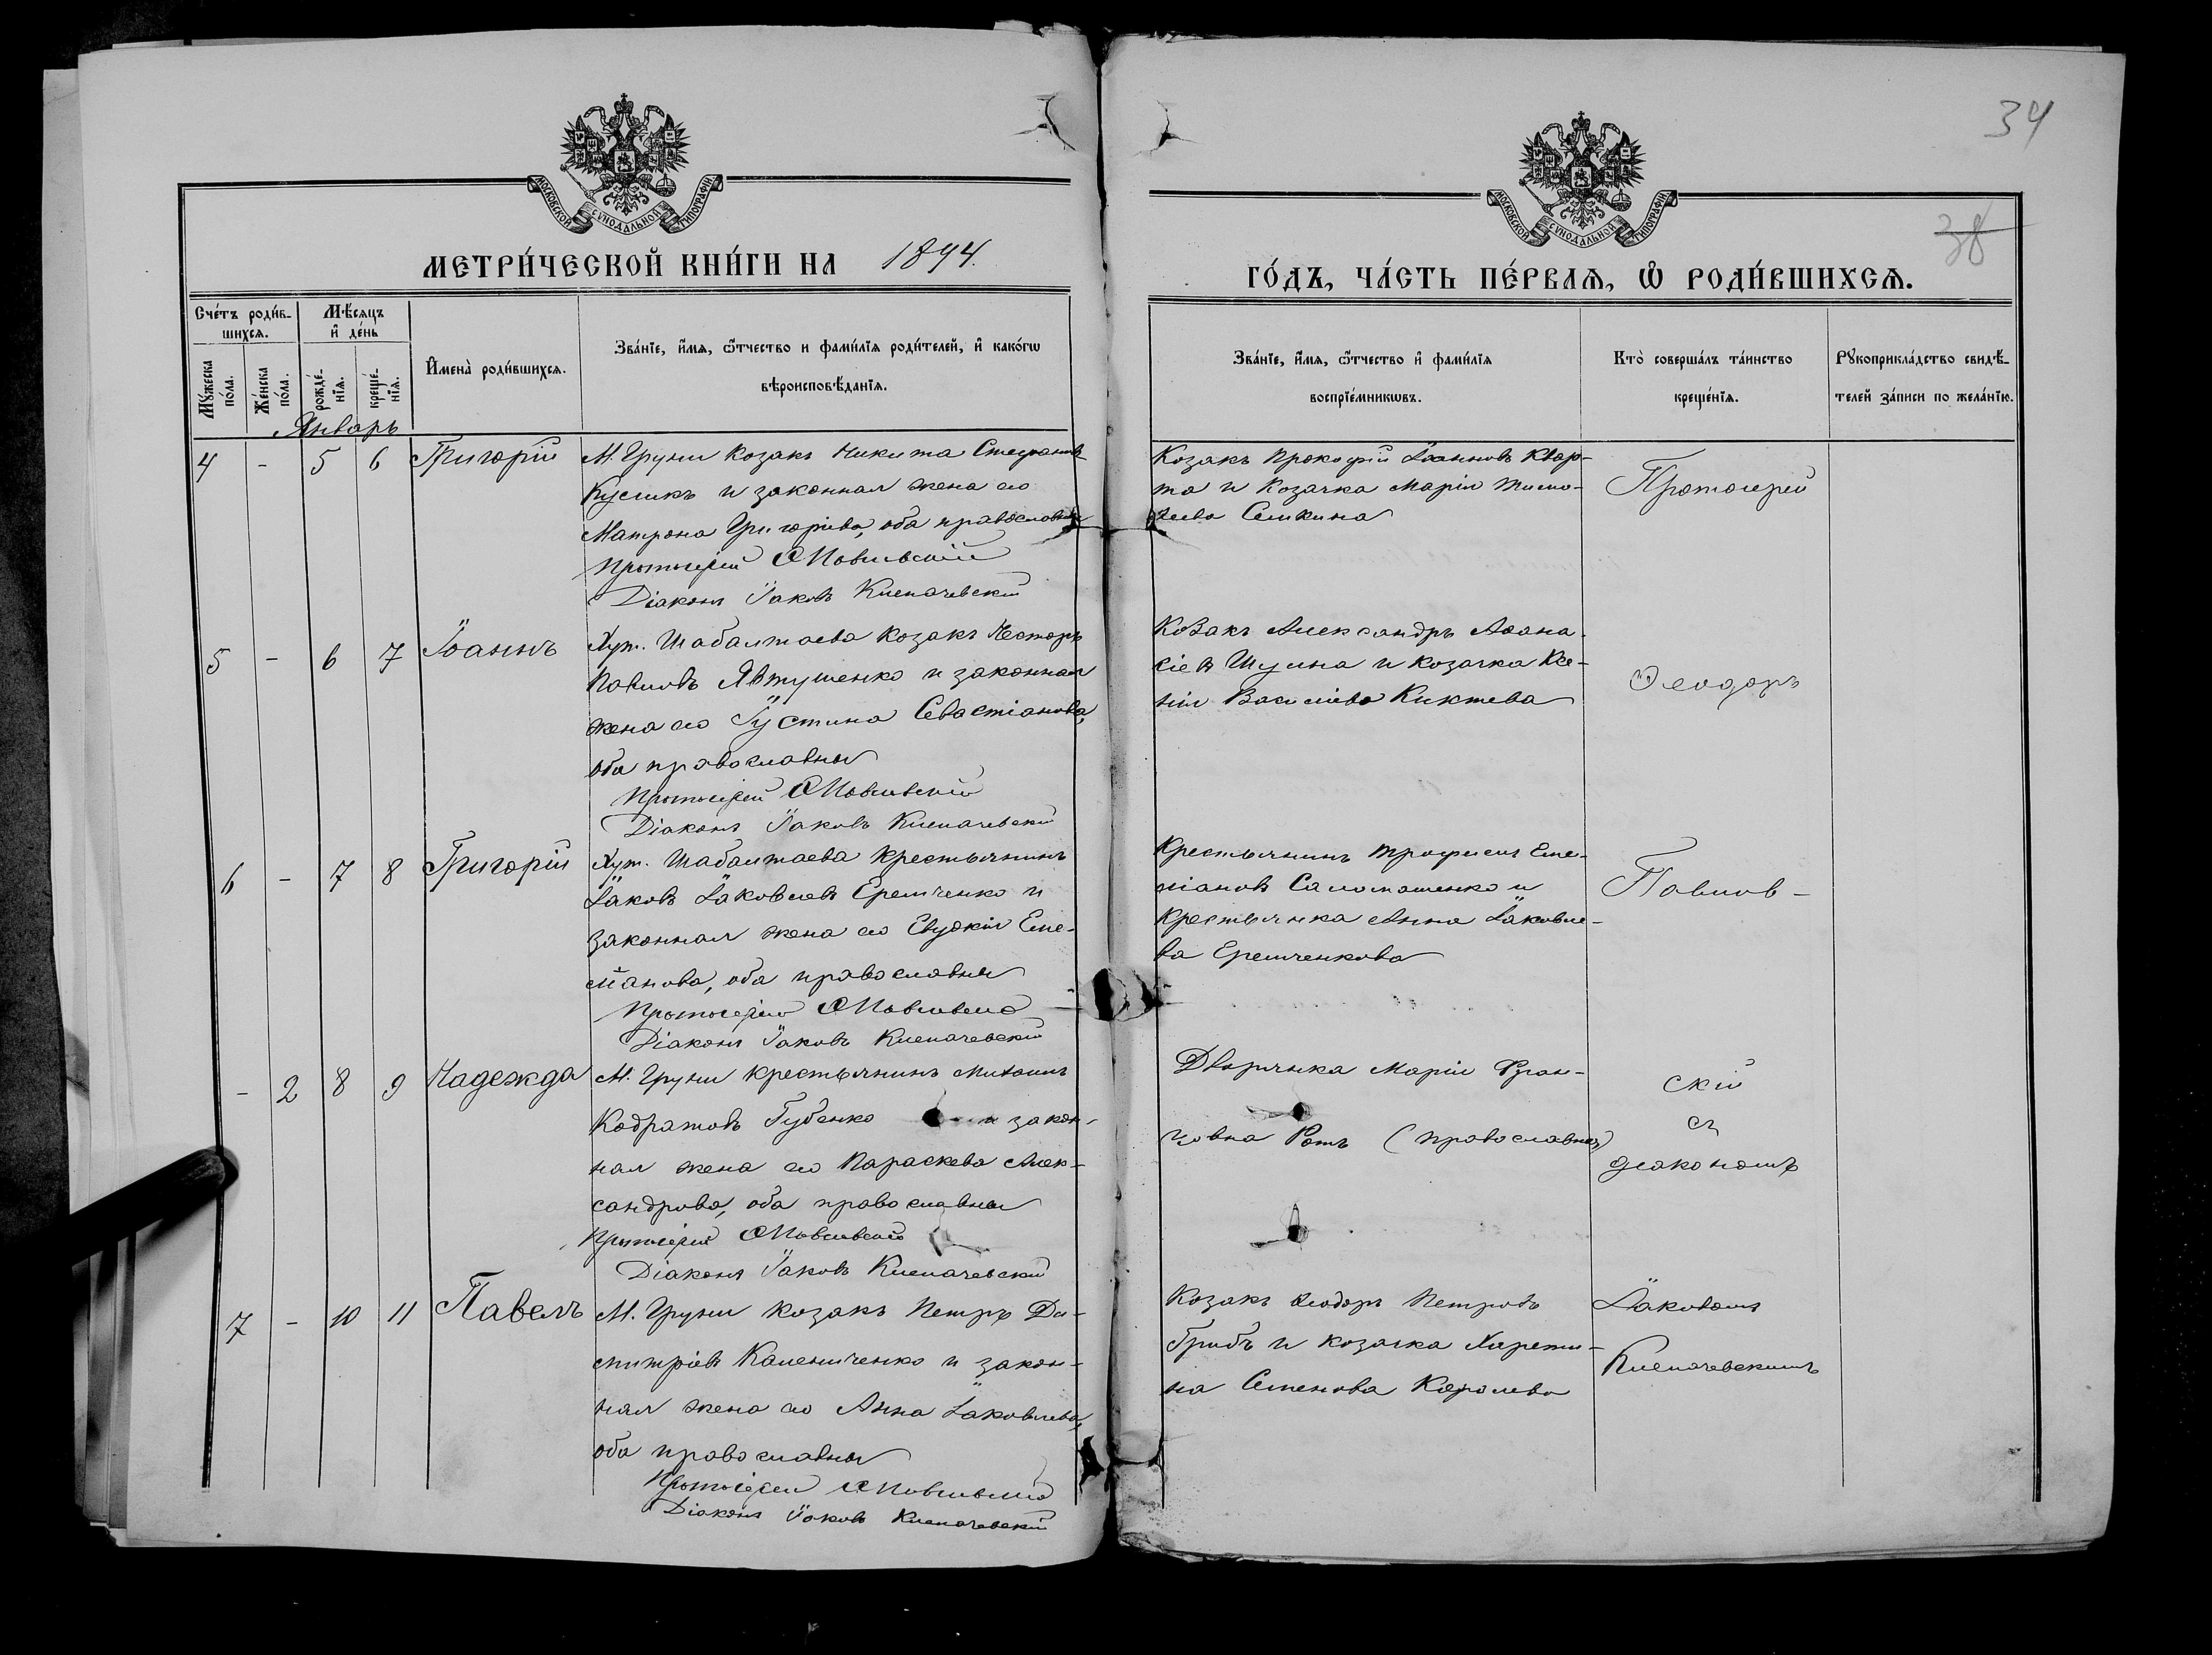 34
38
МОСКОВСКОЙ СѴНОДАЛЬНОЙ ТИПОГРАФІИ
МОСКОВСКОЙ СѴНОДАЛЬНОЙ ТИПОГРАФІИ
МЕТРИ́ЧЕСКОЙ КНИ́ГИ НА 1894.
ГО́ДЪ, ЧА́СТЬ ПЕ́РВАѦ, Ѡ РОДИ́ВШИХСѦ.
Сче́тъ роди́в-
шихсѧ.
Мѣ́сѧцъ
и҆ де́нь
Мꙋ́жеска
по́ла.
Же́нска
по́ла.
рожде́-
нїѧ.
креще́-
нїѧ.
И҆мена̀ роди́вшихсѧ.
Зва́нїе, и҆́мѧ, ѻ҆́тчество и фами́лїѧ роди́телей, и҆ како́гѡ
вѣроисповѣ́данїѧ.
Зва́нїе, и҆́мѧ, ѻ҆́тчество и҆ фами́лїѧ
воспрїе́мникѡвъ.
Кто̀ соверша́лъ та́инство
креще́нїѧ.
Рꙋкоприкла́дство свидѣ́-
телей за́писи по жела́нїю.
Январь
4 - 5 6 Григорій
М. Груни козакъ Никита Стефановъ
Кусликъ и законная жена его
Матрона Григоріева, оба православны
Протоіерей Ѳ Павловскій
Діаконъ Іаковъ Клепачевскій
Козакъ Прокофій Іоанновъ Квар-
та и козачка Марія Тимо-
ѳеева Семкина
Протоіерей
5 - 6 7 Іоаннъ
Хут. Шабалтаева козакъ Несторъ
Павловъ Явтушенко и законная
жена его Іустина Севастіанова,
оба православны
Протоіерей Ѳ Павловскій
Діаконъ Іаковъ Клепачевскій
Козакъ Александръ Аѳана-
сіевъ Шулика и козачка Ксе-
нія Василіева Киктева
Ѳеодоръ
6 - 7 8 Григорій
Хут. Шабалтаева крестьянинъ
Іаковъ Іаковлевъ Еремченко и
законная жена его Евдокія Еме-
ліанова, оба православны
Протоіерей Ѳ Павловскій
Діаконъ Іаковъ Клепачевскій
Крестьянинъ Трофимъ Еме-
ліановъ Саломашенко и
крестьянка Анна Іаковле-
ва Еремченкова
Павлов-
- 2 8 9 Надежда
М. Груни крестьянинъ Михаилъ
Кодратовъ Губенко и закон-
ная жена его Параскева Алек-
сандрова, оба православны
Протоіерей Ѳ Павловскій
Діаконъ Іаковъ Клепачевскій
Дворянка Марія Фран-
цовна Ротъ (православная)
скій
съ
діакономъ
7 - 10 11 Павелъ
М. Груни козакъ Петръ Ди-
митріевъ Калениченко и закон-
ная жена его Анна Іаковлева,
оба православны
Протоіерей Ѳ Павловскій
Діаконъ Іаковъ Клепачевскій
Козакъ Ѳеодоръ Петровъ
Грибъ и козачка Харети-
на Семенова Королева
Іаковомъ
Клепачевскимъ